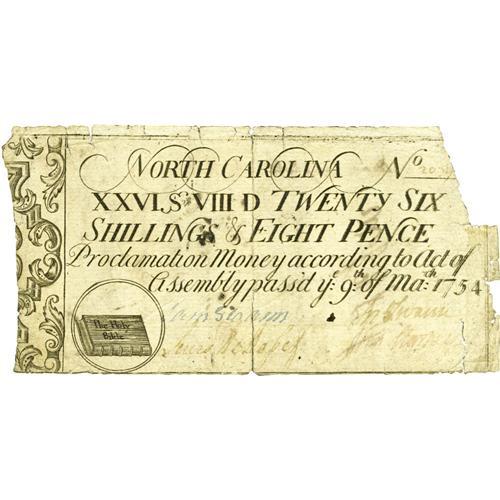 NORTH CAROLINA No
XXVI,S VIII D TWENTY SIX
SHILLINGS & EIGHT PENCE
Proclamation Money according to Act of
Assembly pass'd ye 9th of Mach 1754
The Holy
Bible
Swann